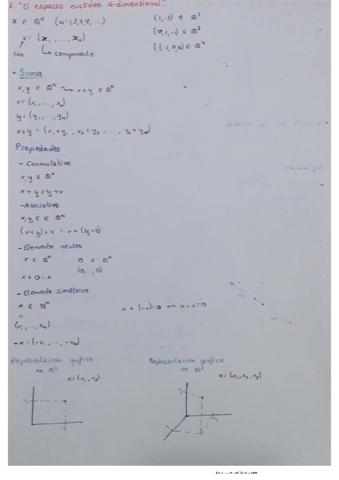 1. "El espacio euclídeo n-dimensional".
x ∈ ℝⁿ (n=1,2,3,4,...) (1,-2) ∈ ℝ²
x = (x₁, ..., xₙ) (0,1,-1) ∈ ℝ³
componente (1,-1,0,2) ∈ ℝ⁴
• Suma
x,y ∈ ℝⁿ ⟿ x+y ∈ ℝⁿ
x = (x₁, ..., xₙ)
y = (y₁, ..., yₙ)
x+y = (x₁+y₁, x₂+y₂, ..., xₙ+yₙ)
Propiedades
- Conmutativa
x,y ∈ ℝⁿ
x+y = y+x
- Asociativa
x,y,z ∈ ℝⁿ
(x+y)+z = x+(y+z)
- Elemento neutro
x ∈ ℝⁿ 0 ∈ ℝⁿ
(0,...,0)
x+0=x
- Elemento simétrico
x ∈ ℝⁿ x+(-x)=0 ⟿ x-x=0
(x₁, ..., xₙ)
-x = (-x₁, ..., -xₙ)
Representación gráfica Representación gráfica
en ℝ² en ℝ³
x = (x₁, x₂) x = (x₁, x₂, x₃)